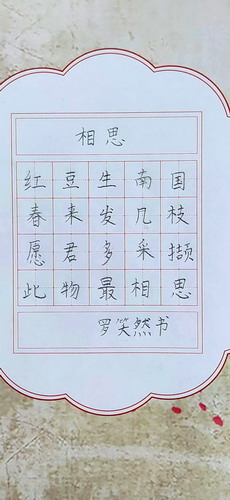 相思
红豆生南国
春来发几枝
愿君多采撷
此物最相思
罗笑然书